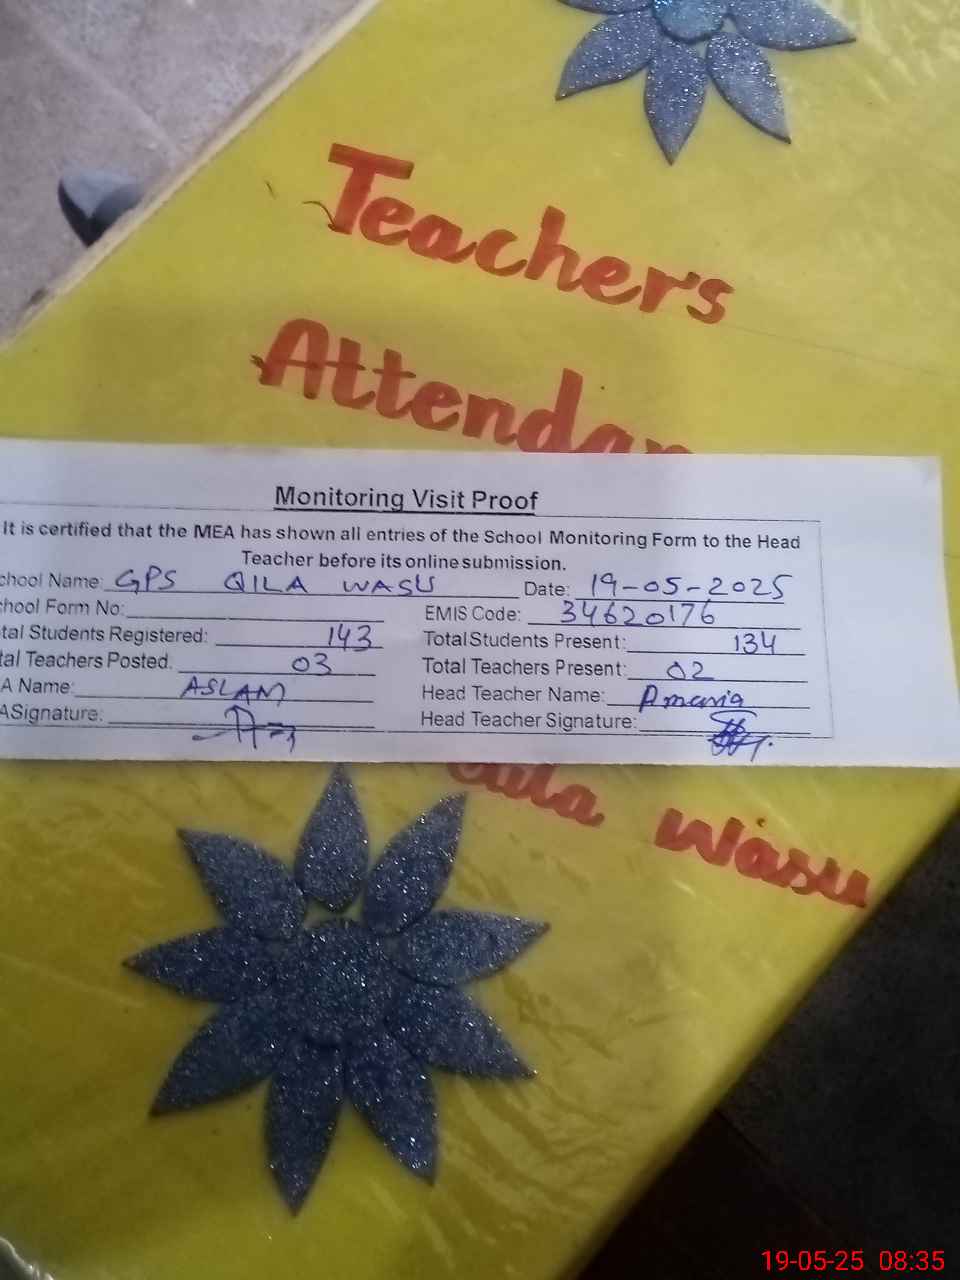 Teacher's
Attendan
Monitoring Visit Proof
It is certified that the MEA has shown all entries of the School Monitoring Form to the Head
Teacher before its online submission.
chool Name: GPS QILA WASU Date: 19-05-2025
chool Form No: EMIS Code: 34620176
tal Students Registered: 143 Total Students Present: 134
tal Teachers Posted. 03 Total Teachers Present: 02
A Name: ASLAM Head Teacher Name:
ASignature: Head Teacher Signature:
Wasu
19-05-25 08:35